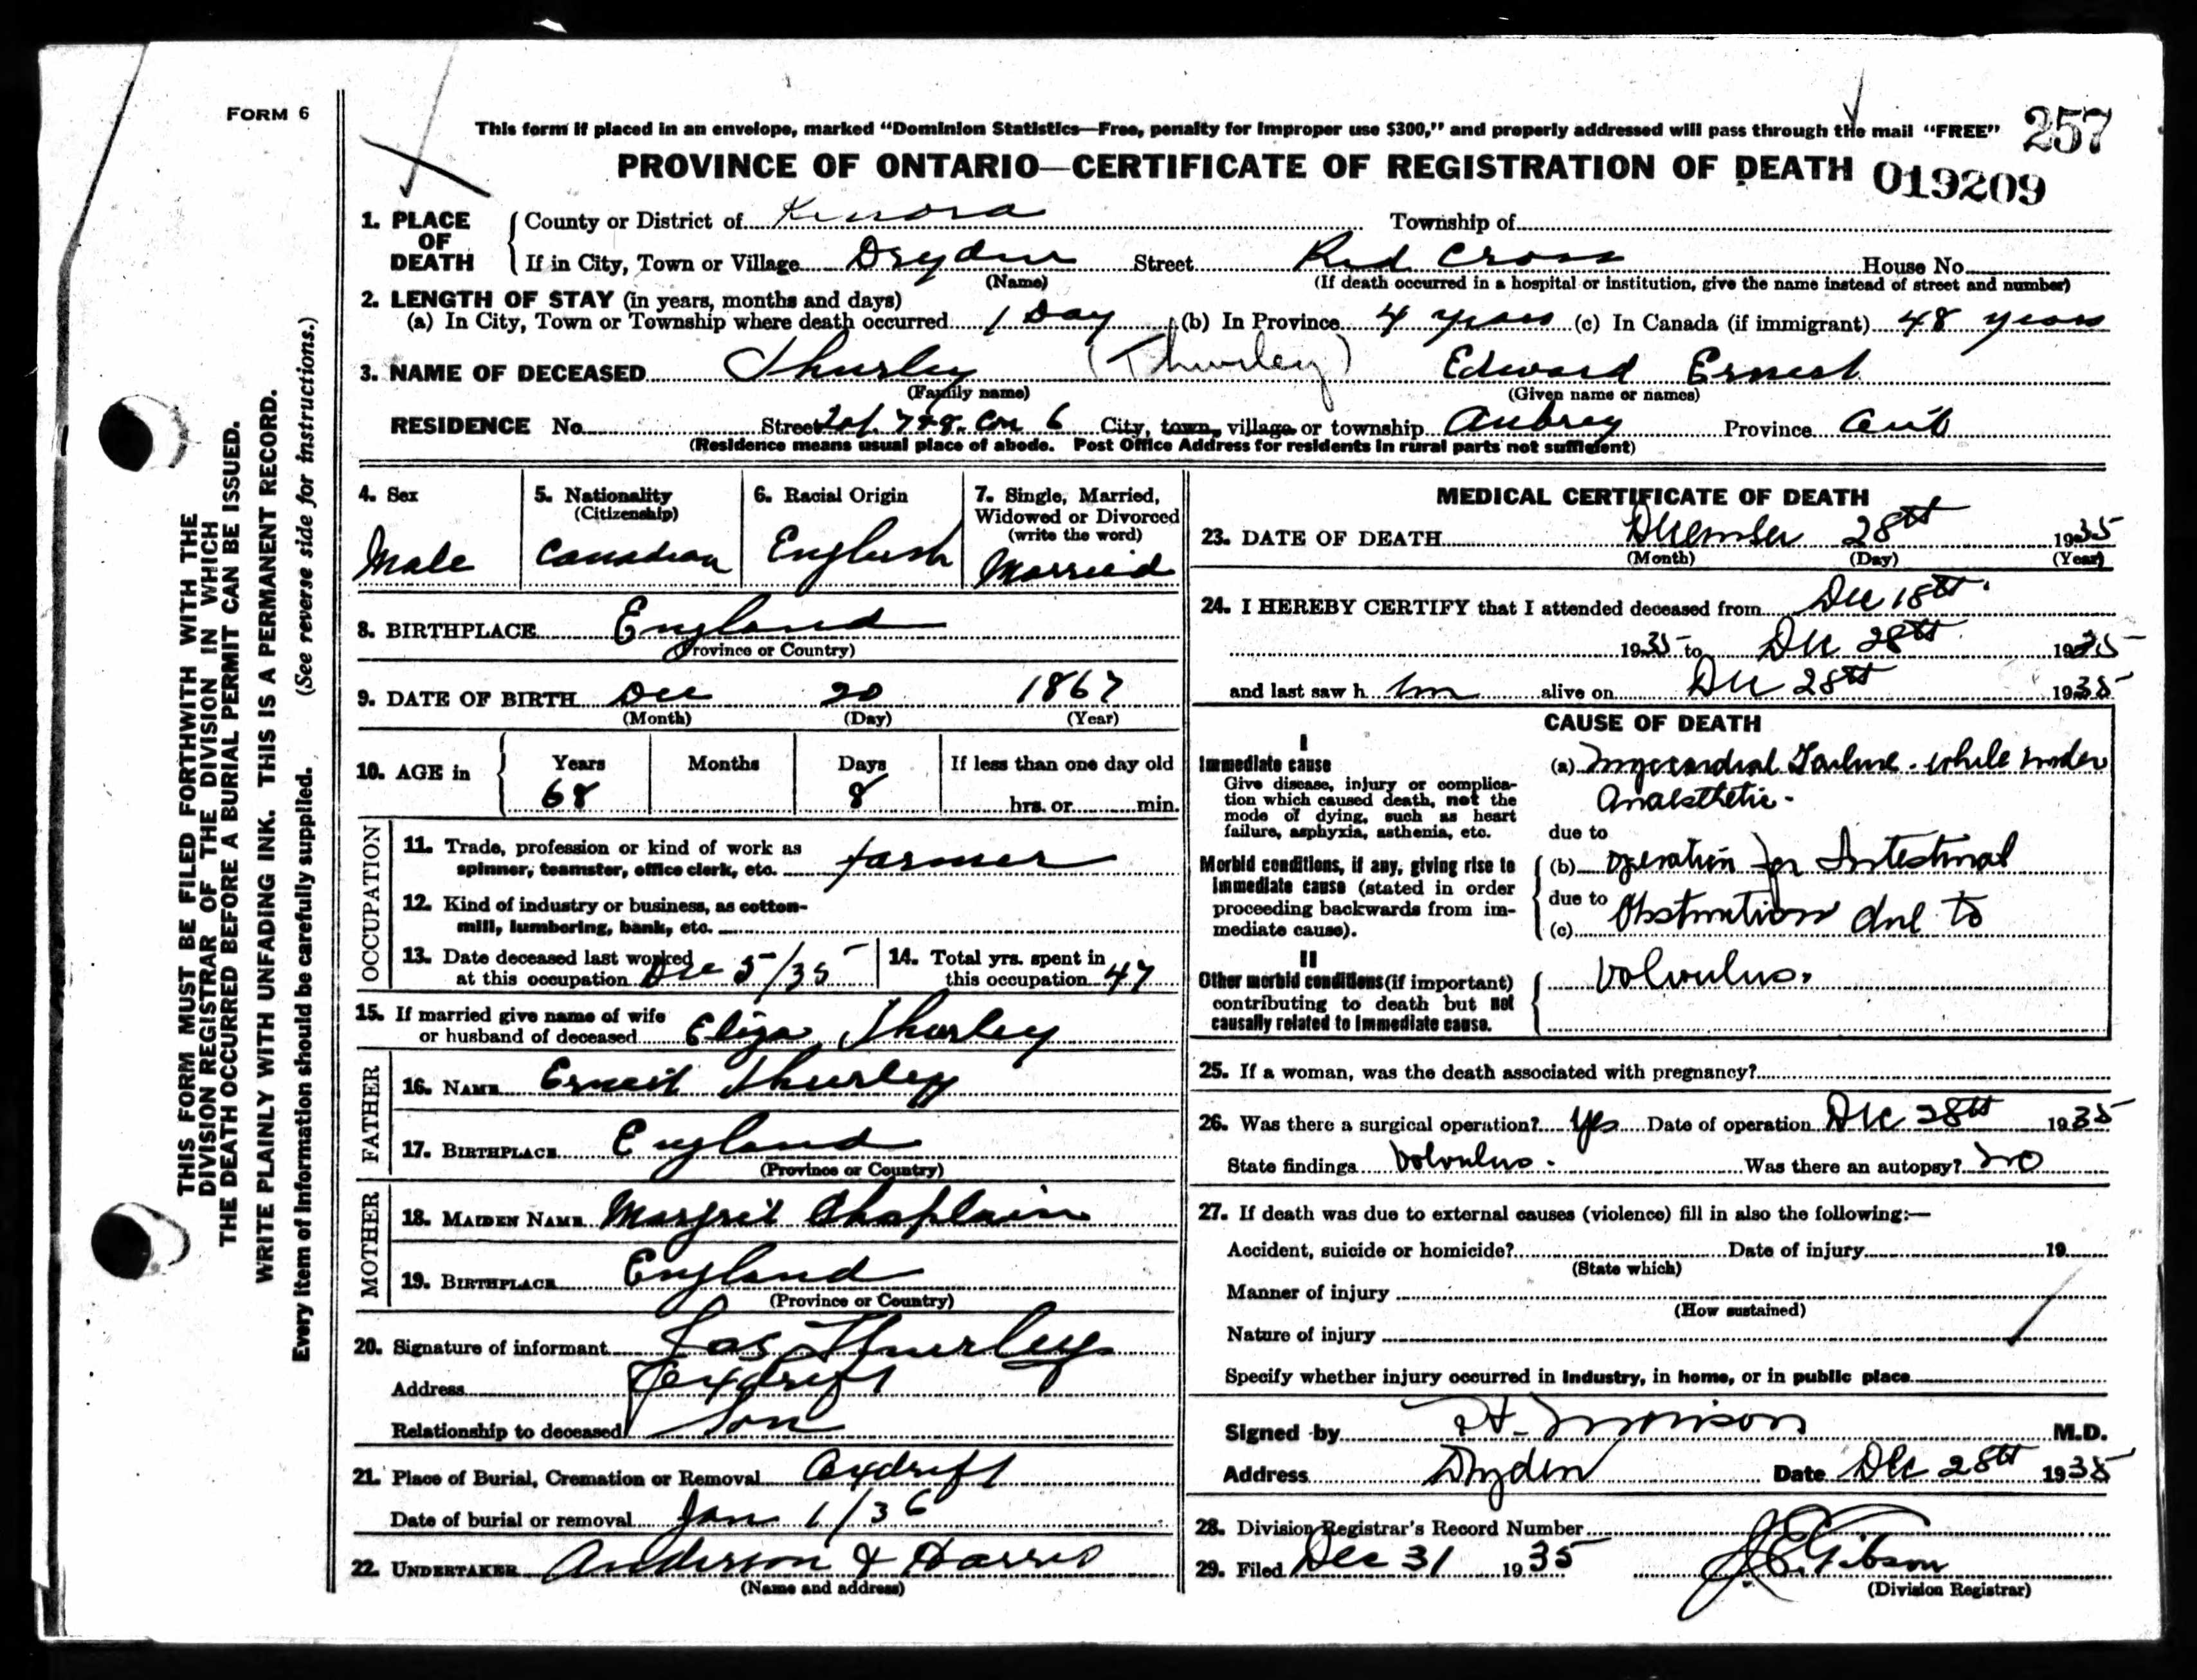 FORM 6
This form if placed in an envelope, marked "Dominion Statistics—Free, penalty for improper use $300," and properly addressed will pass through the mail "FREE"
257
PROVINCE OF ONTARIO—CERTIFICATE OF REGISTRATION OF DEATH
019209
THIS FORM MUST BE FILED FORTHWITH WITH THE
DIVISION REGISTRAR OF THE DIVISION IN WHICH
THE DEATH OCCURRED BEFORE A BURIAL PERMIT CAN BE ISSUED.
WRITE PLAINLY WITH UNFADING INK. THIS IS A PERMANENT RECORD.
Every item of information should be carefully supplied. (See reverse side for instructions.)
1. PLACE OF DEATH
County or District of Kenora Township of
If in City, Town or Village Dryden Street Red Cross House No.
(Name) (If death occurred in a hospital or institution, give the name instead of street and number)
2. LENGTH OF STAY (in years, months and days)
(a) In City, Town or Township where death occurred 1 Day (b) In Province 4 years (c) In Canada (if immigrant) 48 years
3. NAME OF DECEASED Thurley (Thurley) Edward Ernest
(Family name) (Given name or names)
RESIDENCE No. Street Lot 7 & 8 Con 6 City, town, village or township Aubrey Province Ont
(Residence means usual place of abode. Post Office Address for residents in rural parts not sufficient)
4. Sex
Male
5. Nationality
(Citizenship)
Canadian
6. Racial Origin
English
7. Single, Married,
Widowed or Divorced
(write the word)
Married
8. BIRTHPLACE England
(Province or Country)
9. DATE OF BIRTH Dec 20 1867
(Month) (Day) (Year)
10. AGE in
Years Months Days If less than one day old
68 8 hrs. or min.
OCCUPATION
11. Trade, profession or kind of work as
spinner, teamster, office clerk, etc. farmer
12. Kind of industry or business, as cotton-
mill, lumbering, bank, etc.
13. Date deceased last worked
at this occupation Dec 5/35
14. Total yrs. spent in
this occupation 47
15. If married give name of wife
or husband of deceased Eliza Thurley
FATHER
16. NAME Ernest Thurley
17. BIRTHPLACE England
(Province or Country)
MOTHER
18. MAIDEN NAME Margret Chaplain
19. BIRTHPLACE England
(Province or Country)
20. Signature of informant Jas Thurley
Address Oxdrift
Relationship to deceased Son
21. Place of Burial, Cremation or Removal Oxdrift
Date of burial or removal Jan 1/36
22. UNDERTAKER Anderson & Harris
(Name and address)
MEDICAL CERTIFICATE OF DEATH
23. DATE OF DEATH December 28th 1935
(Month) (Day) (Year)
24. I HEREBY CERTIFY that I attended deceased from Dec 18th
1935 to Dec 28th 1935
and last saw h im alive on Dec 28th 1935
CAUSE OF DEATH
I
Immediate cause
Give disease, injury or complica-
tion which caused death, not the
mode of dying, such as heart
failure, asphyxia, asthenia, etc.
(a) Myocardial Failure - while under
Anaesthetic -
due to
Morbid conditions, if any, giving rise to
immediate cause (stated in order
proceeding backwards from im-
mediate cause).
(b) operation for Intestinal
due to
(c) Obstruction due to
II
Other morbid conditions (if important)
contributing to death but not
causally related to immediate cause.
Volvulus.
25. If a woman, was the death associated with pregnancy?
26. Was there a surgical operation? Yes Date of operation Dec 28th 1935
State findings Volvulus. Was there an autopsy? No
27. If death was due to external causes (violence) fill in also the following:—
Accident, suicide or homicide? Date of injury 19
(State which)
Manner of injury
(How sustained)
Nature of injury
Specify whether injury occurred in industry, in home, or in public place
Signed by M.D.
Address Dryden Date Dec 28th 1935
28. Division Registrar's Record Number
29. Filed Dec 31 1935 J.E. Gibson
(Division Registrar)